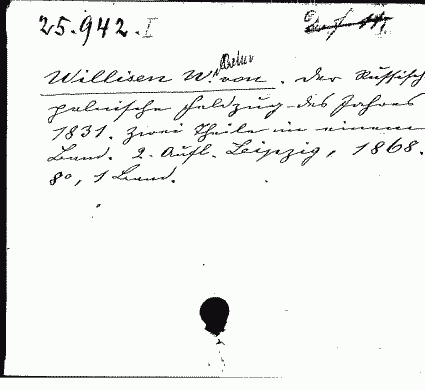 25.942.I
Willisen W. von. Der Russisch
polnische Feldzug des Jahres
1831. Zwei Theile in einem
Band. 2. Aufl. Leipzig, 1868.
8°, 1 Band.